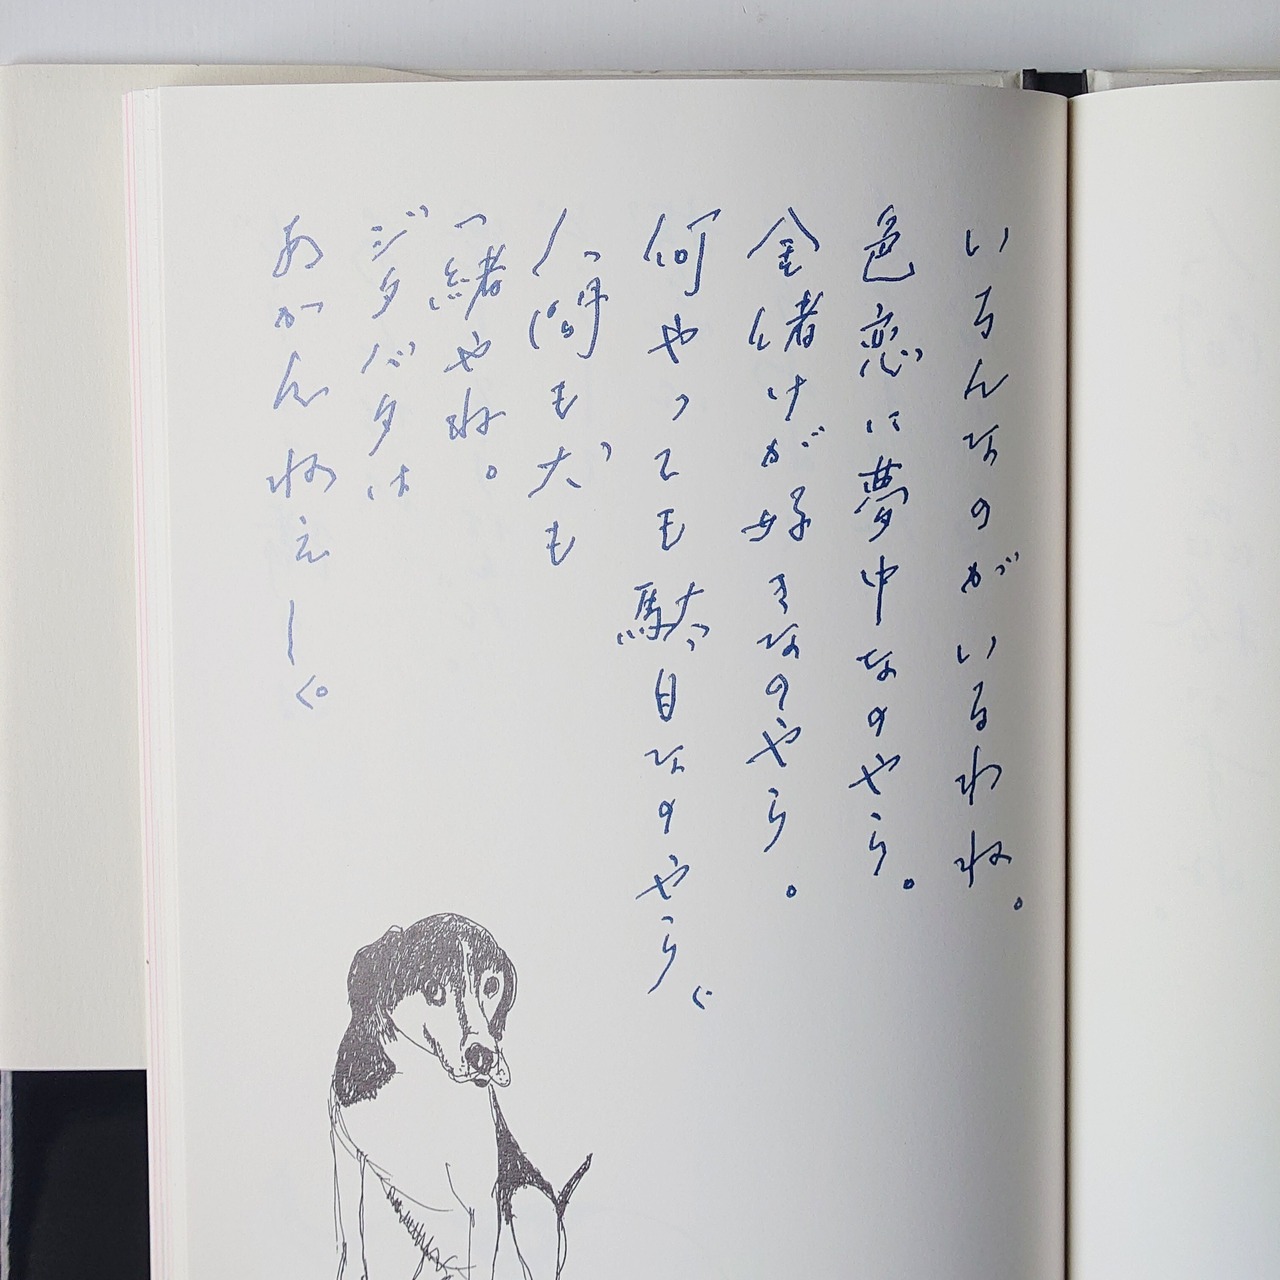 いろんなのがいるわね。
色恋に夢中なのやら。
金儲けが好きなのやら。
何やっても駄目なのやら。
人間も犬も
一緒やね。
ジタバタは
あかんねぇー。